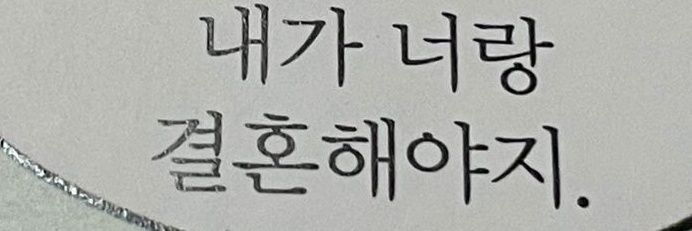 내가 너랑
결혼해야지.